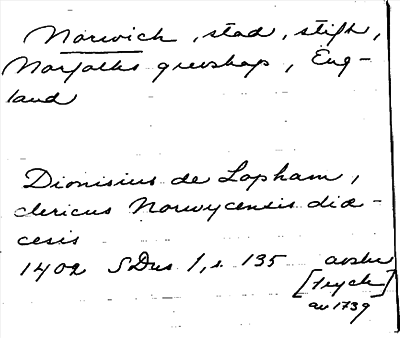 Norwich, stad, stift,
Norfolks grevskap, Eng-
land
Dionisius de Lopham,
clericus Norwycensis dio-
cesis
1402 SDns 1, s. 135 avskr
[tryck]
av 1739